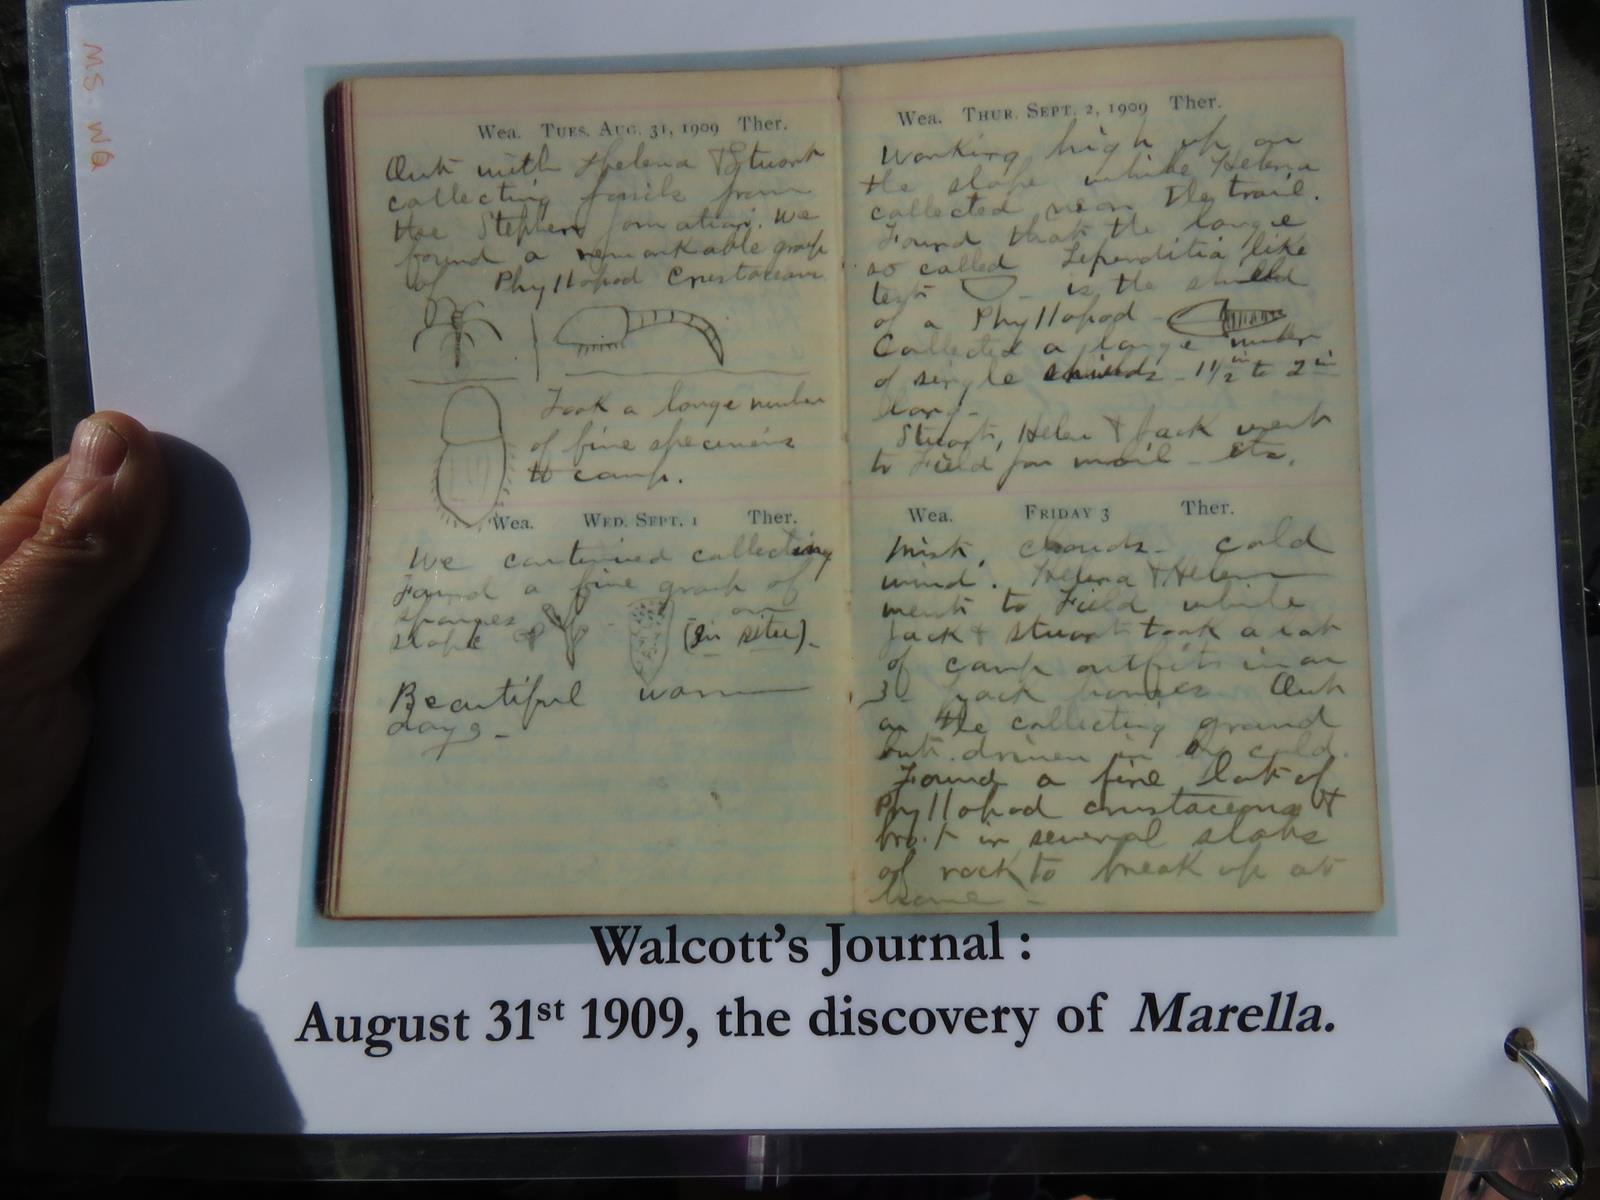 MS WQ
Wea. TUES. AUG. 31, 1909 Ther.
Out with Helena & Stuart
collecting fossils from
the Stephen formation. We
found a remarkable group
of Phyllopod Crustaceans
Took a large number
of fine specimens
to camp.
Wea. WED. SEPT. 1 Ther.
We continued collecting
Found a fine group of
sponges on
slope (in situ).
Beautiful warm
days.
Wea. THUR. SEPT. 2, 1909 Ther.
Working high up on
the slope while Helena
collected near the trail.
Found that the large
so called Leperditia like
test - is the shield
of a Phyllopod
Collected a large number
of single shields - 1 1/2 in to 2 in
long.
Stuart, Helen & Jack went
to Field for mail - etc.
Wea. FRIDAY 3 Ther.
Mist, clouds - cold
wind. Helena & Helen
went to Field while
Jack & Stuart took a lot
of camp outfits in on
3 pack horses Out
on the collecting ground
but driven in by cold.
Found a fine lot of
Phyllopod crustaceans &
bro't in several slabs
of rock to break up at
home -
Walcott's Journal :
August 31st 1909, the discovery of Marella.